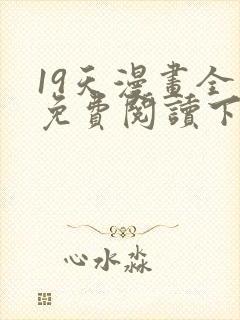 19天漫畫全
免費閱讀下
心水淼